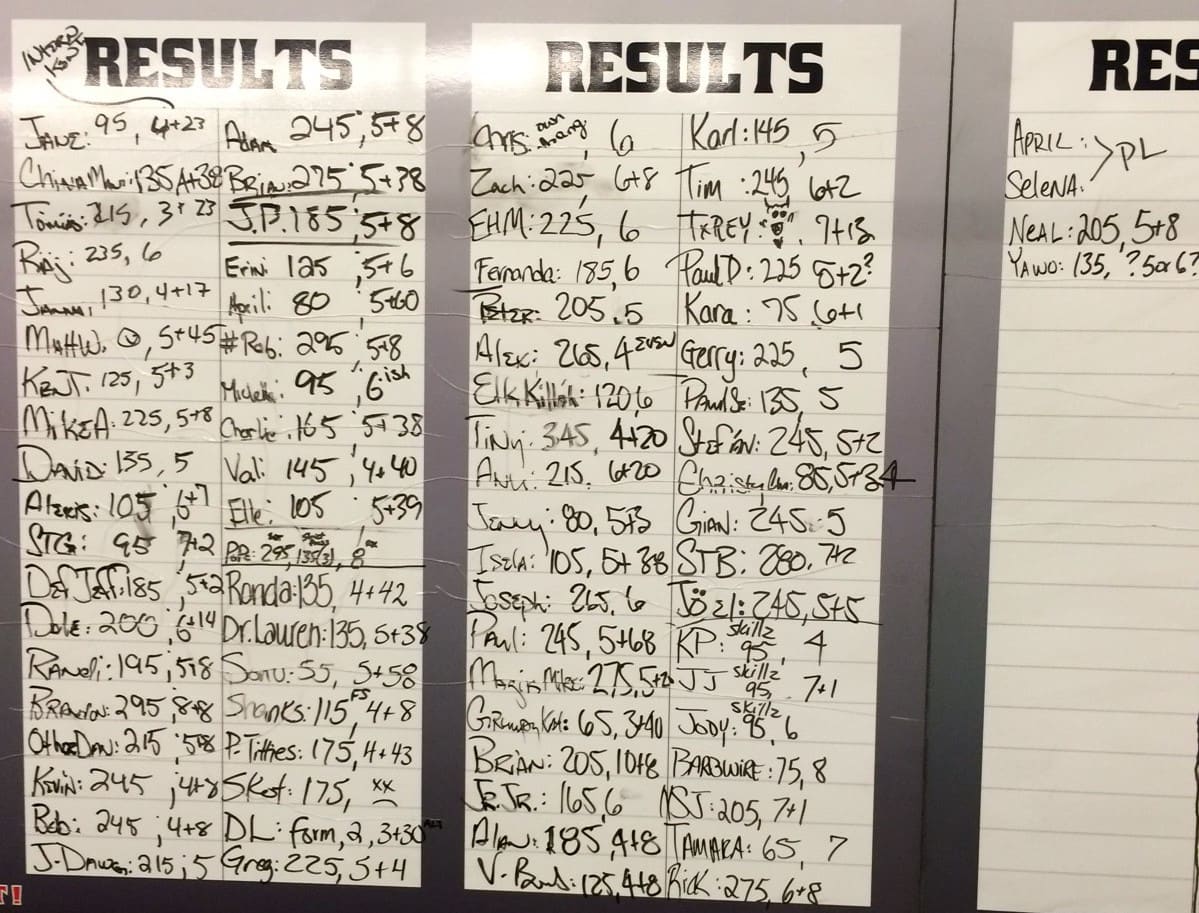 RESULTS
JANE: 95, 4+23
135, A+38
215, 3+23
Raj: 235, 6
130, 4+17
MattW. 5+45
KENT. 125, 5+3
MikeA: 225, 5+8
DAVID: 135, 5
Alexis: 105, 6+7
STG: 95, 7+2
Def Jeff: 185, 5+2
Dole: 200, 6+14
Randi: 195, 5+8
Brandon: 295, 8+8
Other Dan: 215, 5+8
Kevin: 245, 4+8
Bob: 245, 4+8
J-Dawg: 215, 5
Adam 245, 5+8
Brian: 275, 5+38
J.P. 185, 5+8
Erin: 125, 5+6
April: 80 5+60
#Rob: 295, 5+8
Michelle: 95, 6 ish
Charlie: 165, 5+38
Val: 145, 4+40
Elle: 105 5+39
POPE: 295, 135(3), 8
Ronda: 135, 4+42
Dr. Lauren: 135, 5+38
55, 5+58
Shanks: 115 FS, 4+8
P. Titties: 175, 4+43
175, xx
DL: form, 2, 3+30
Greg: 225, 5+4
RESULTS
Chris: own thang, 6
Zach: 225, 6+8
EHM: 225, 6
Fernanda: 185, 6
Peter: 205, 5
Alex: 265, 4 EVEN
Elk Killah: 120, 6
Tiny: 345, 4+20
215, 6+20
Jenny: 80, 5+3
Isela: 105, 5+38
Joseph: 265, 6
Paul: 245, 5+68
Mike: 275,
65, 3+40
Brian: 205, 10+8
Jr. Jr.: 165, 6
Alan: 185, 4+8
125, 4+8
Karl: 145, 5
Tim: 245, 6+2
TxREY: 7+13
Paul D: 225 5+2?
Kara: 75, 6+1
Gerry: 225, 5
135, 5
Stefán: 245, 5+2
85, 5+34
Gian: 245, 5
STB: 280, 7+2
Jöel: 245, 5+5
KP: skillz 95, 4
JJ skillz 95, 7+1
Jody: skillz 95, 6
BARBWIRE: 75, 8
NSJ: 205, 7+1
TAMARA: 65, 7
Rick: 275, 6+8
RES
APRIL: > PL
SELENA.
NEAL: 205, 5+8
YAWO: 135, ?5 or 6?
T!